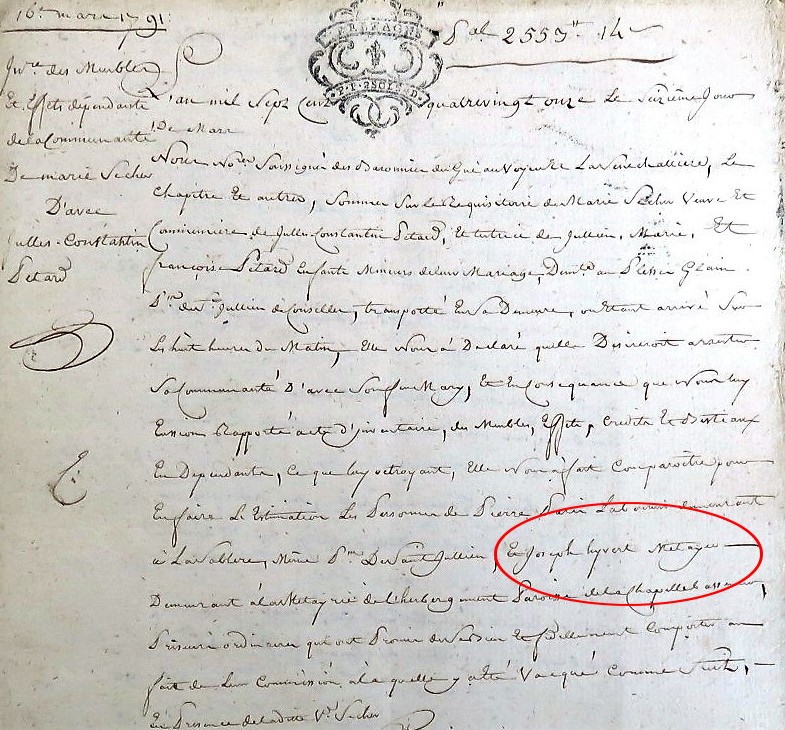 16e mars 1791
Pal 2553 tt 14 s
BRETAGNE
Inv.re des Meubles
Et Effets dépendants
de la Communauté
De marie Secher
D'avec
Julles-Constantin
Petard
L'an mil Sept Cent quatrevingt onze Le Seizième Jour
De Mars
Nous No.res Soussignés des Baronnies du Gué au Voyer La Senechallière, Le
Chapitre Et autres, Sommes Sur Le Requisitoire de Marie Secher Veuve Et
Communière de Julles-Constantin Petard, Et tutrice de Jullien, Marie, Et
françoise Petard Enfants Mineurs de leur Mariage, Dem.te au Plessis Glain
P.sse du St Jullien de Concelles, transporté En Sa Demeure, ou Etant arrivé Sur
Les huit heures du Matin, Elle Nous à Déclaré quelle Désireroit arrester
Sa Communauté D'avec Son feu Mary, Et En Conséquance que Nous luy
Eussions Rapporté acte d'inventaire, des Meubles, Effets, Crédits Et Bestiaux
En Dependants, Ce que luy octroyant, Elle Nous a fait Comparoitre pour
En faire Le Estimation Les Personnes de Pierre Laboureur demeurant
à La Sablere, Même P.sse De Saint Jullien, Et Joseph hyvert Metayer
Demeurant à la Metayrie de l'herbergement Paroisse de la Chapelle bassemer,
Priseurs ordinaires qui ont Promis de Se Bien Et fidellement Comporter au
fait de Leur Commission à la quelle y a Eté Vacqué Comme Suit,
En Presance de ladite V.e Secher